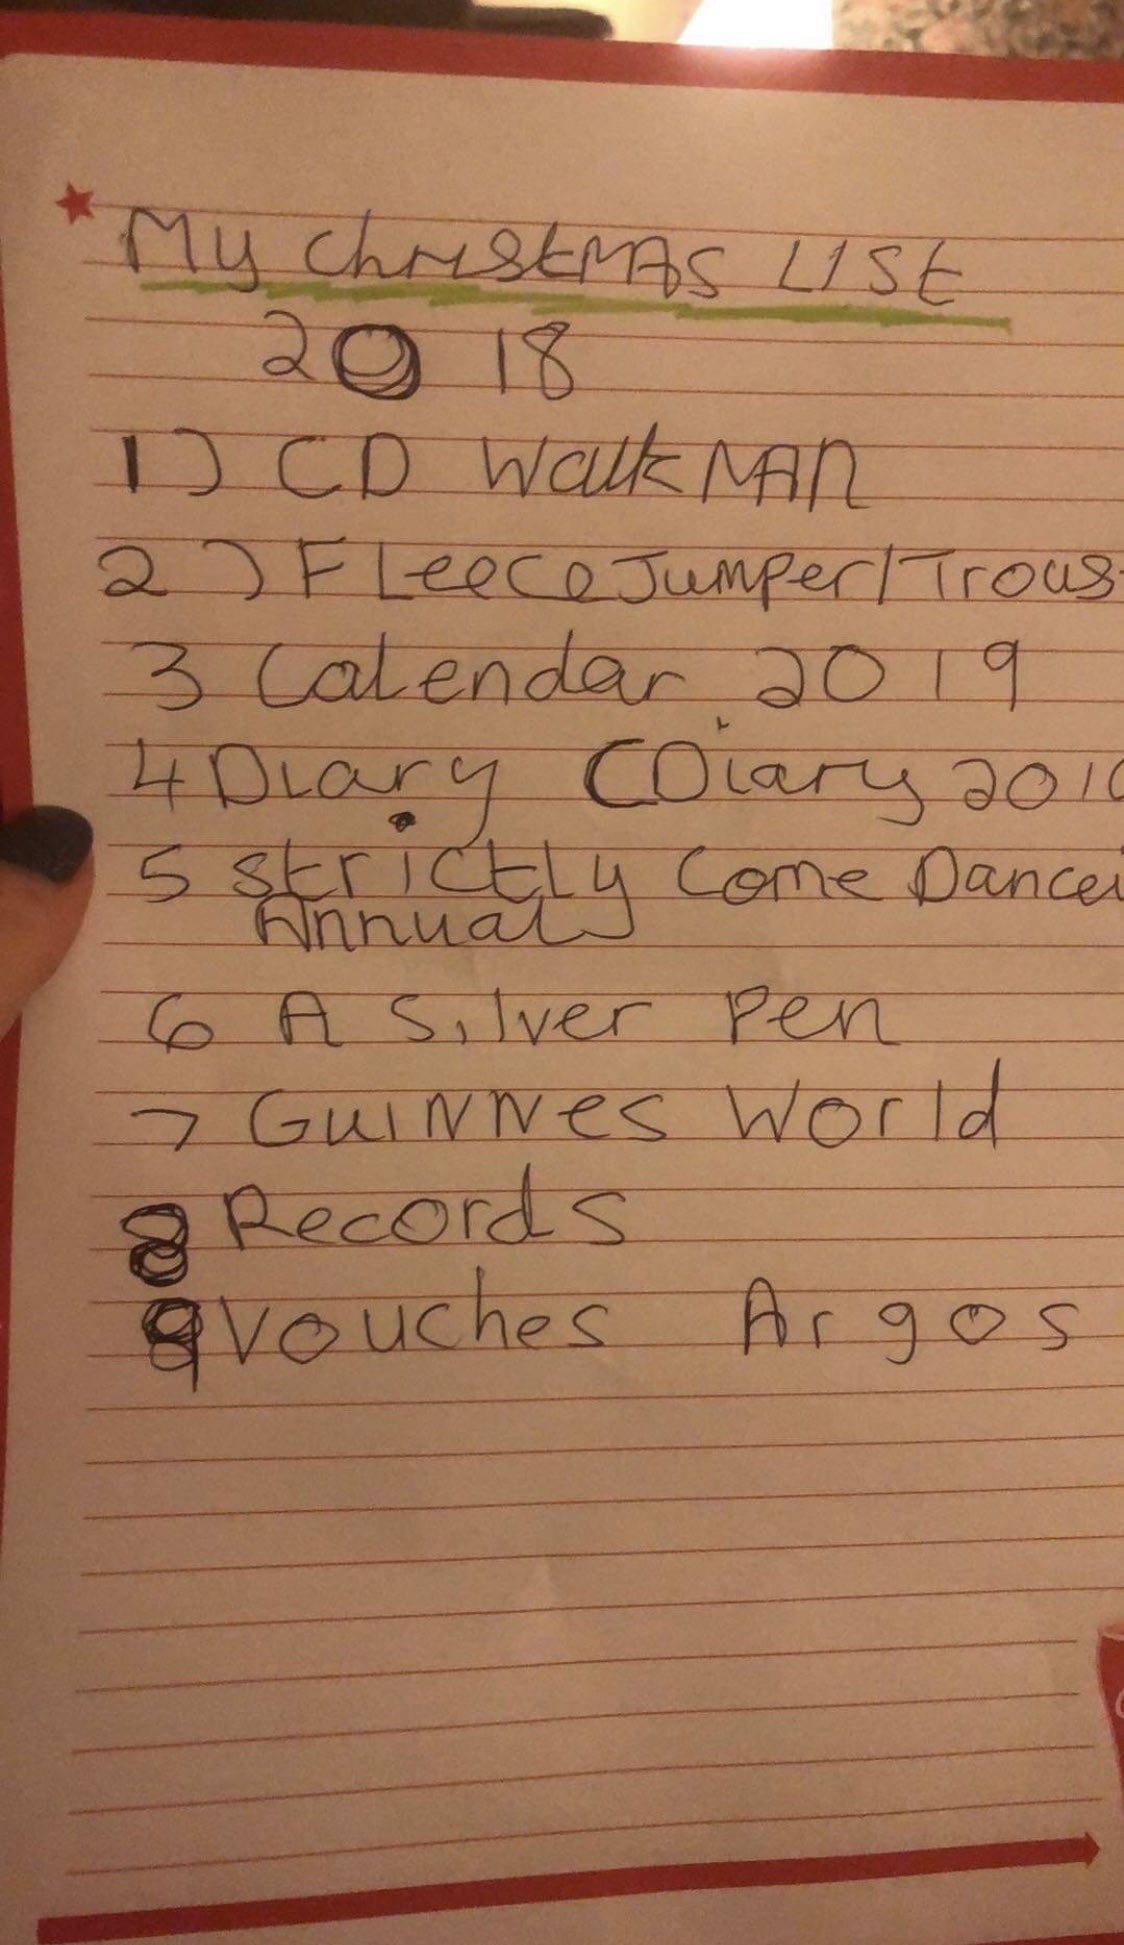 My christmas List
2018
1) CD Walkman
2) Fleece Jumper/Trous
3 Calendar 2019
4 Diary (Diary 201
5 Strictly Come Dancei
Annual
6 A Silver Pen
7 Guinnes World
8 Records
9 Vouches Argos